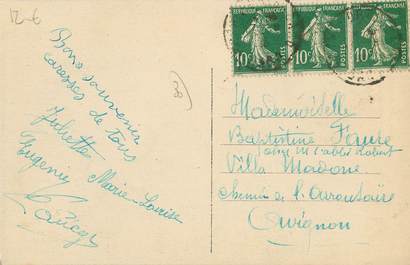 12-6
Bons souvenirs
caresses de tous
Juliette
Eugenie Marie-Louise
REPUBLIQUE FRANÇAISE
10c POSTES
REPUBLIQUE FRANÇAISE
10c POSTES
REPUBLIQUE FRANÇAISE
10c POSTES
Mademoiselle
Baptistine Faure
chez M. l'abbé Robert
Villa Madone
Chemin de l'
Avignon